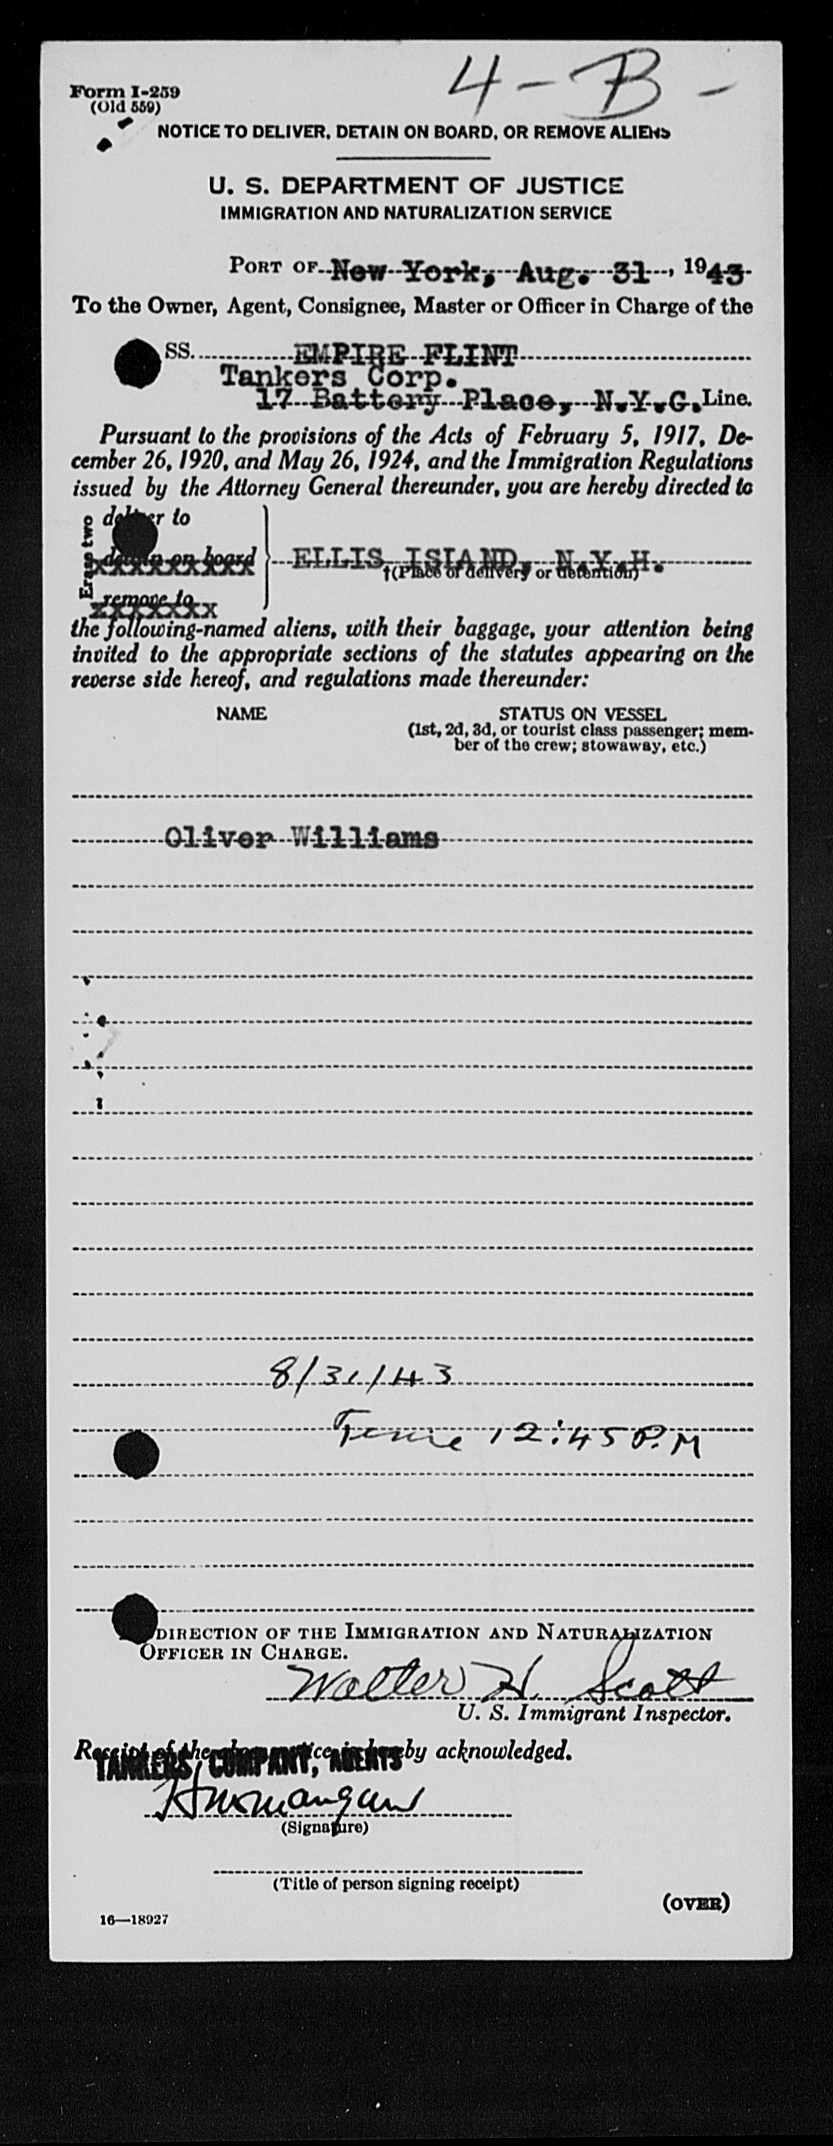 4 - B -
Form I-259
(Old 559)
NOTICE TO DELIVER, DETAIN ON BOARD, OR REMOVE ALIENS
U. S. DEPARTMENT OF JUSTICE
IMMIGRATION AND NATURALIZATION SERVICE
PORT OF New York, Aug. 31, 1943
To the Owner, Agent, Consignee, Master or Officer in Charge of the
SS. EMPIRE FLINT
Tankers Corp.
17 Battery Place, N.Y.C. Line.
Pursuant to the provisions of the Acts of February 5, 1917, De-
cember 26, 1920, and May 26, 1924, and the Immigration Regulations
issued by the Attorney General thereunder, you are hereby directed to
Erase two
deliver to
detain on board
remove to
ELLIS ISLAND, N.Y.H.
†(Place of delivery or detention)
the following-named aliens, with their baggage, your attention being
invited to the appropriate sections of the statutes appearing on the
reverse side hereof, and regulations made thereunder:
NAME STATUS ON VESSEL
(1st, 2d, 3d, or tourist class passenger; mem-
ber of the crew; stowaway, etc.)
Oliver Williams
8/31/43
Time 12:45 P.M
DIRECTION OF THE IMMIGRATION AND NATURALIZATION
OFFICER IN CHARGE.
Walter H. Scott
U. S. Immigrant Inspector.
Receipt of the above notice is hereby acknowledged.
TANKERS COMPANY, AGENTS
(Signature)
(Title of person signing receipt)
(OVER)
16—18927